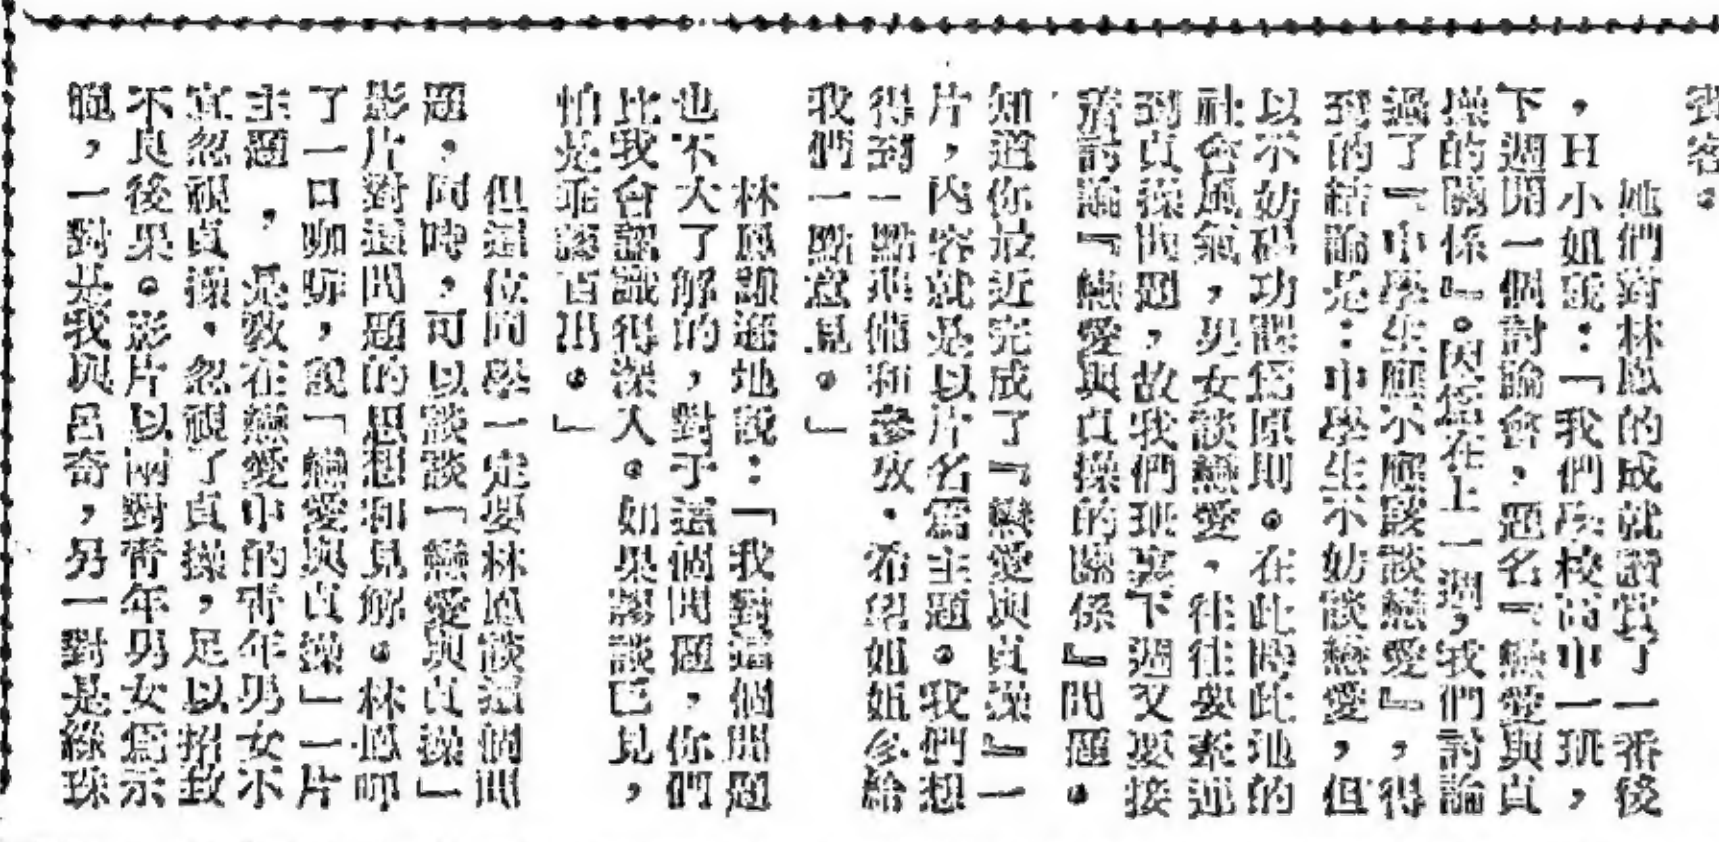 賓客。
她們對林鳳的成就讚賞了一番後
，H小姐說：「我們學校高中一班，
下週開一個討論會，題名『戀愛與貞
操的關係』。因爲在上一週，我們討論
過了『中學生應不應該談戀愛』，得
到的結論是：中學生不妨談戀愛，但
以不妨碍功課爲原則。在此時此地的
社會風氣，男女談戀愛，往往要牽連
到貞操問題，故我們班裏下週又要接
着討論『戀愛與貞操的關係』問題。
知道你最近完成了『戀愛與貞操』一
片，內容就是以片名爲主題。我們想
得到一點準備和參攷，希望姐姐多給
我們一點意見。」
林鳳謙遜地說：「我對這個問題
也不大了解的，對于這個問題，你們
比我會認識得深入。如果談已見，
怕是乖謬百出。」
但這位同學一定要林鳳談這個問
題，同時，可以談談「戀愛與貞操」
影片對這問題的思想和見解。林鳳呷
了一口咖啡，說「戀愛與貞操」一片
主題，是敎在戀愛中的靑年男女不
宜忽視貞操，忽視了貞操，足以招致
不良後果。影片以兩對靑年男女爲示
範，一對是我與呂奇，另一對是綠珠